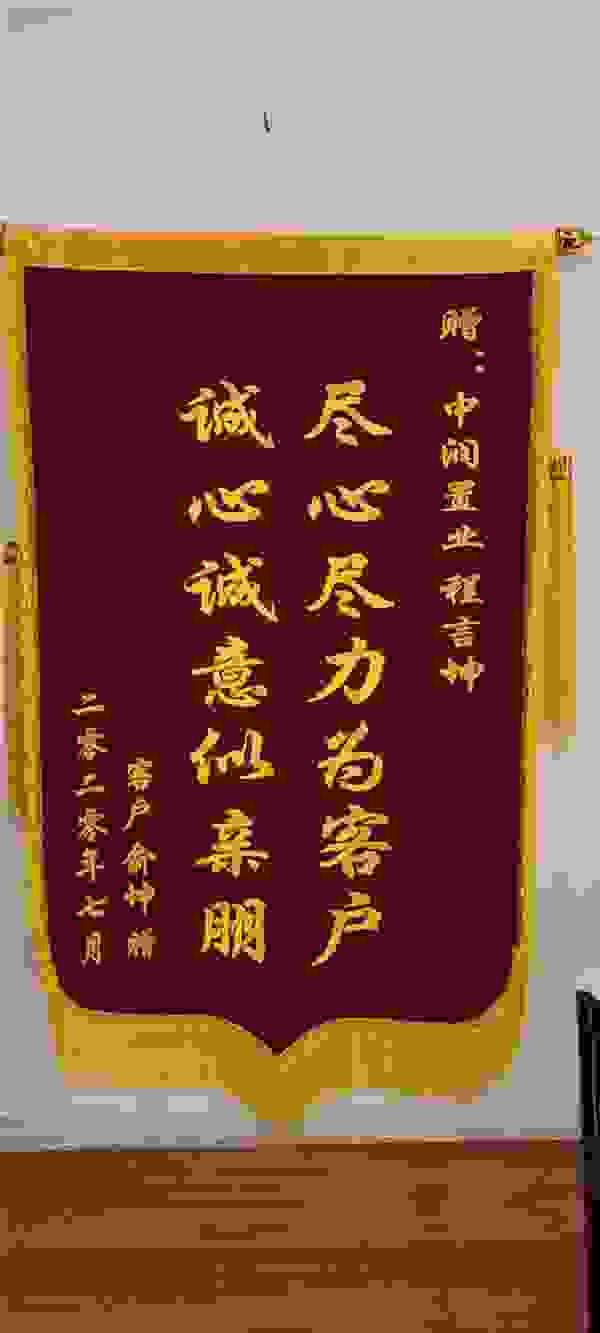 赠：中润置业程言坤
尽心尽力为客户
诚心诚意似亲朋
客户俞坤赠
二零二零年七月